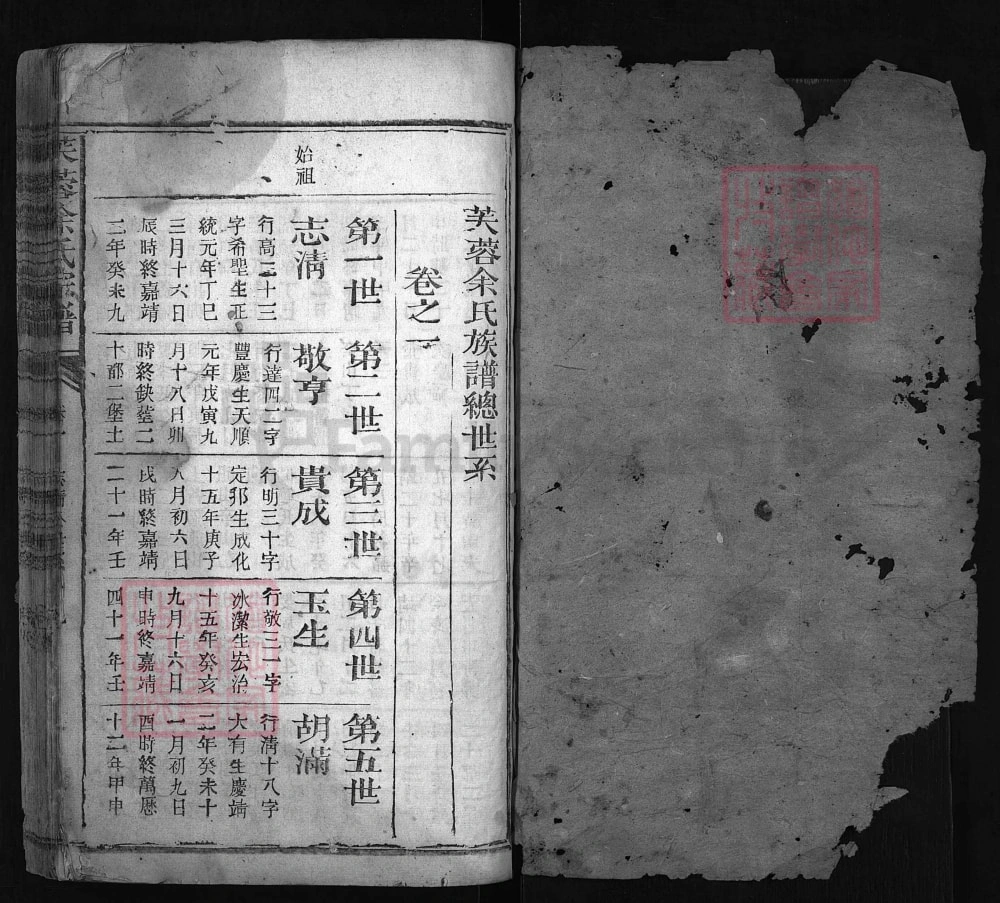 芙蓉余氏族譜總世系
卷之一
始祖
第一世
志清
行高二十三
字希聖生正
統元年丁巳
三月十六日
辰時終嘉靖
二年癸未九
第二世
敬亨
行達四二字
豐慶生天順
元年戊寅九
月十八日卯
時終缺塟二
十都二堡土
第三世
貴成
行明三十字
定邦生成化
十五年庚子
八月初六日
戌時終嘉靖
二十一年壬
第四世
玉生
行敬三一字
冰潔生宏治
十五年癸亥
九月十六日
申時終嘉靖
四十一年壬
第五世
胡滿
行淸十八字
大有生慶靖
二年癸未十
一月初九日
酉時終萬歷
十二年甲申
芙蓉余氏宗譜